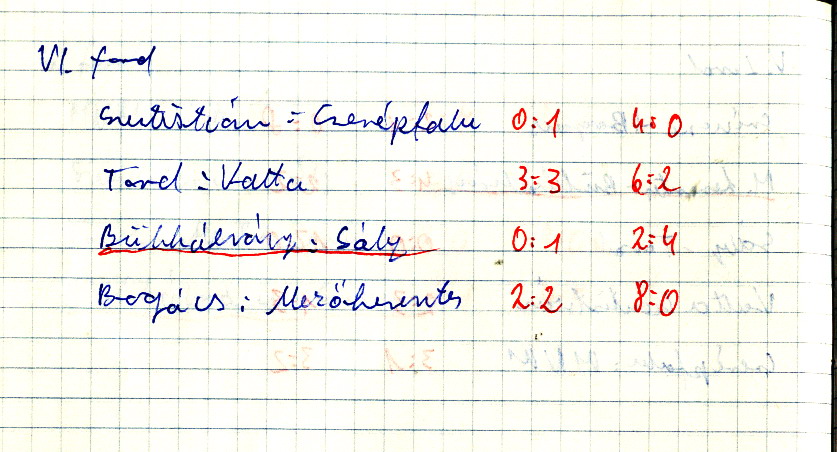 VI. ford
Szentistván : Cserépfalu 0:1 4:0
Tard : Vatta 3:3 6:2
Bükkábrány : Sály 0:1 2:4
Bogács : Mezőkeresztes 2:2 8:0